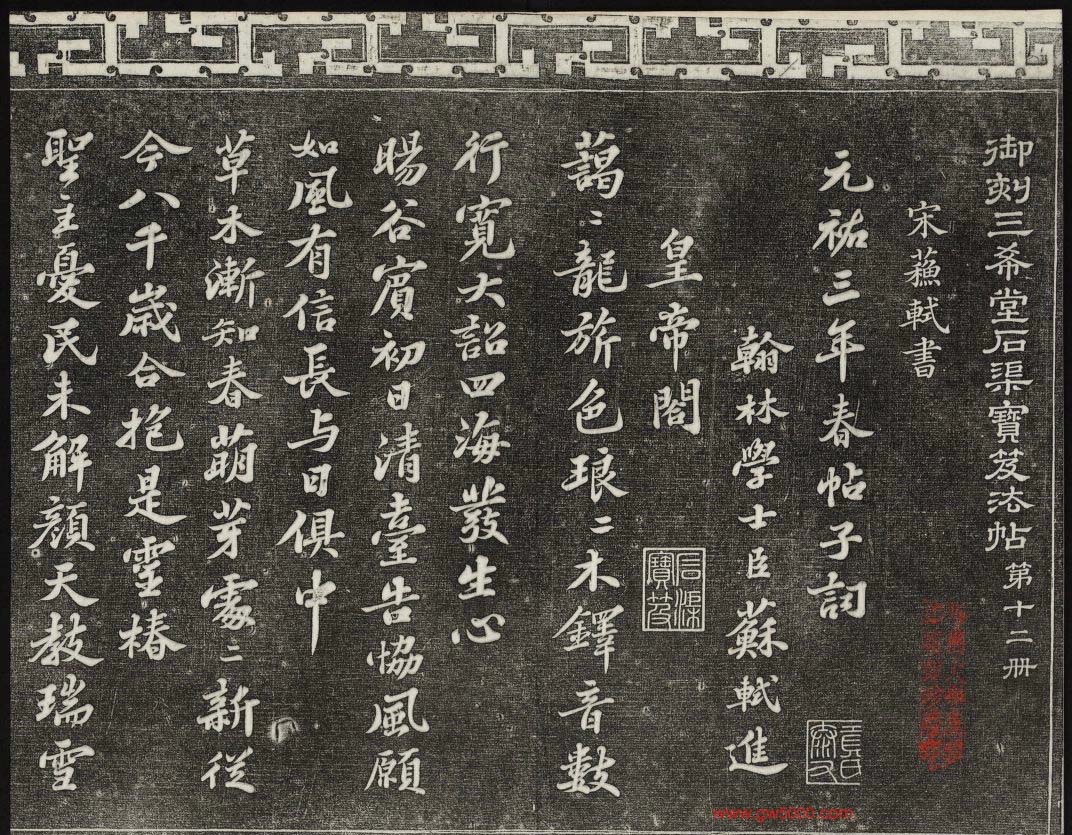 御刻三希堂石渠寶笈法帖第十二册
宋蘓軾書
元祐三年春帖子詞
翰林學士臣蘇軾進
皇帝閣
石渠寶笈
藹〻龍旂色琅〻木鐸音數
行寬大詔四海發生心
暘谷賓初日清臺告協風願
如風有信長与日俱中
草木漸知春萌芽處〻新從
今八千歲合抱是靈椿
聖主憂民未解顏天教瑞雪